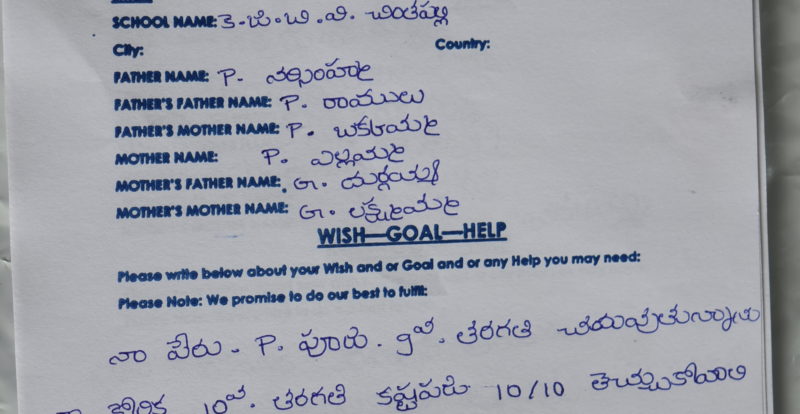 SCHOOL NAME: కె.జి.బి.వి. చింతపల్లి
City: Country:
FATHER NAME: P. నర్సింహ
FATHER'S FATHER NAME: P. రాములు
FATHER'S MOTHER NAME: P.
MOTHER NAME: P. ఎల్లమ్మ
MOTHER'S FATHER NAME: G.
MOTHER'S MOTHER NAME: G. లక్ష్మమ్మ
WISH—GOAL—HELP
Please write below about your Wish and or Goal and or any Help you may need:
Please Note: We promise to do our best to fulfil:
నా పేరు - P. పూజ. 9వ. తరగతి చదువుతున్నాను
కోరిక 10వ. తరగతి కష్టపడి 10/10 తెచ్చుకోవాలి